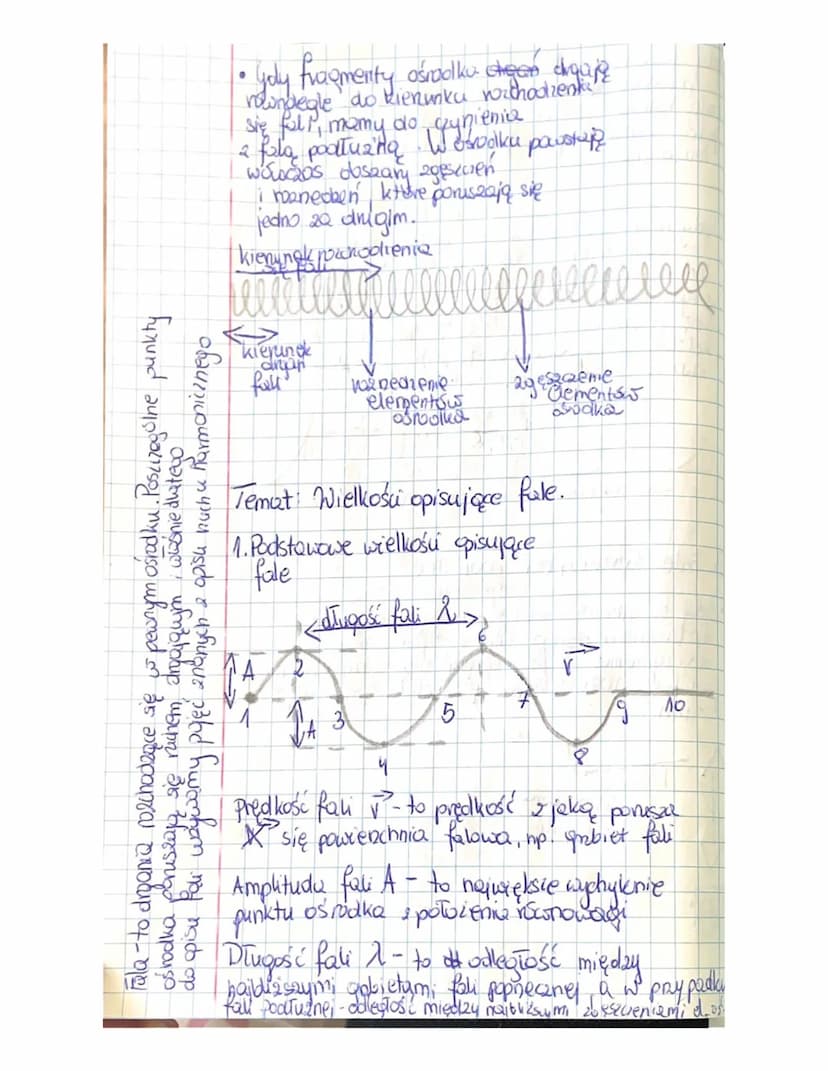 • Gdy fragmenty ośrodka drgają
równolegle do kierunku rozchodzenia
się fali, mamy do czynienia
z falą podłużną. W ośrodku powstają
wówczas obszary zgęszczeń
i rozrzedzeń, które poruszają się
jedno za drugim.
kierunek rozchodzenia
się fali
kierunek
drgań
fali
rozrzedzenie
elementów
ośrodka
zgęszczenie
elementów
ośrodka
Temat: Wielkości opisujące fale.
1. Podstawowe wielkości opisujące
fale
długość fali λ
A
1
2
3
A
4
5
6
7
8
9
10
v
Prędkość fali v - to prędkość z jaką porusza
się powierzchnia falowa, np. grzbiet fali
Amplituda fali A - to największe wychylenie
punktu ośrodka z położenia równowagi
Długość fali λ - to odległość między
najbliższymi grzbietami fali poprzecznej, a w przypadku
fali podłużnej - odległość między najbliższymi zgęszczeniami
Fala - to drgania rozchodzące się w pewnym ośrodku. Poszczególne punkty
ośrodka poruszają się ruchem drgającym i właśnie dlatego
do opisu fali używamy pojęć znanych z opisu ruchu harmonicznego